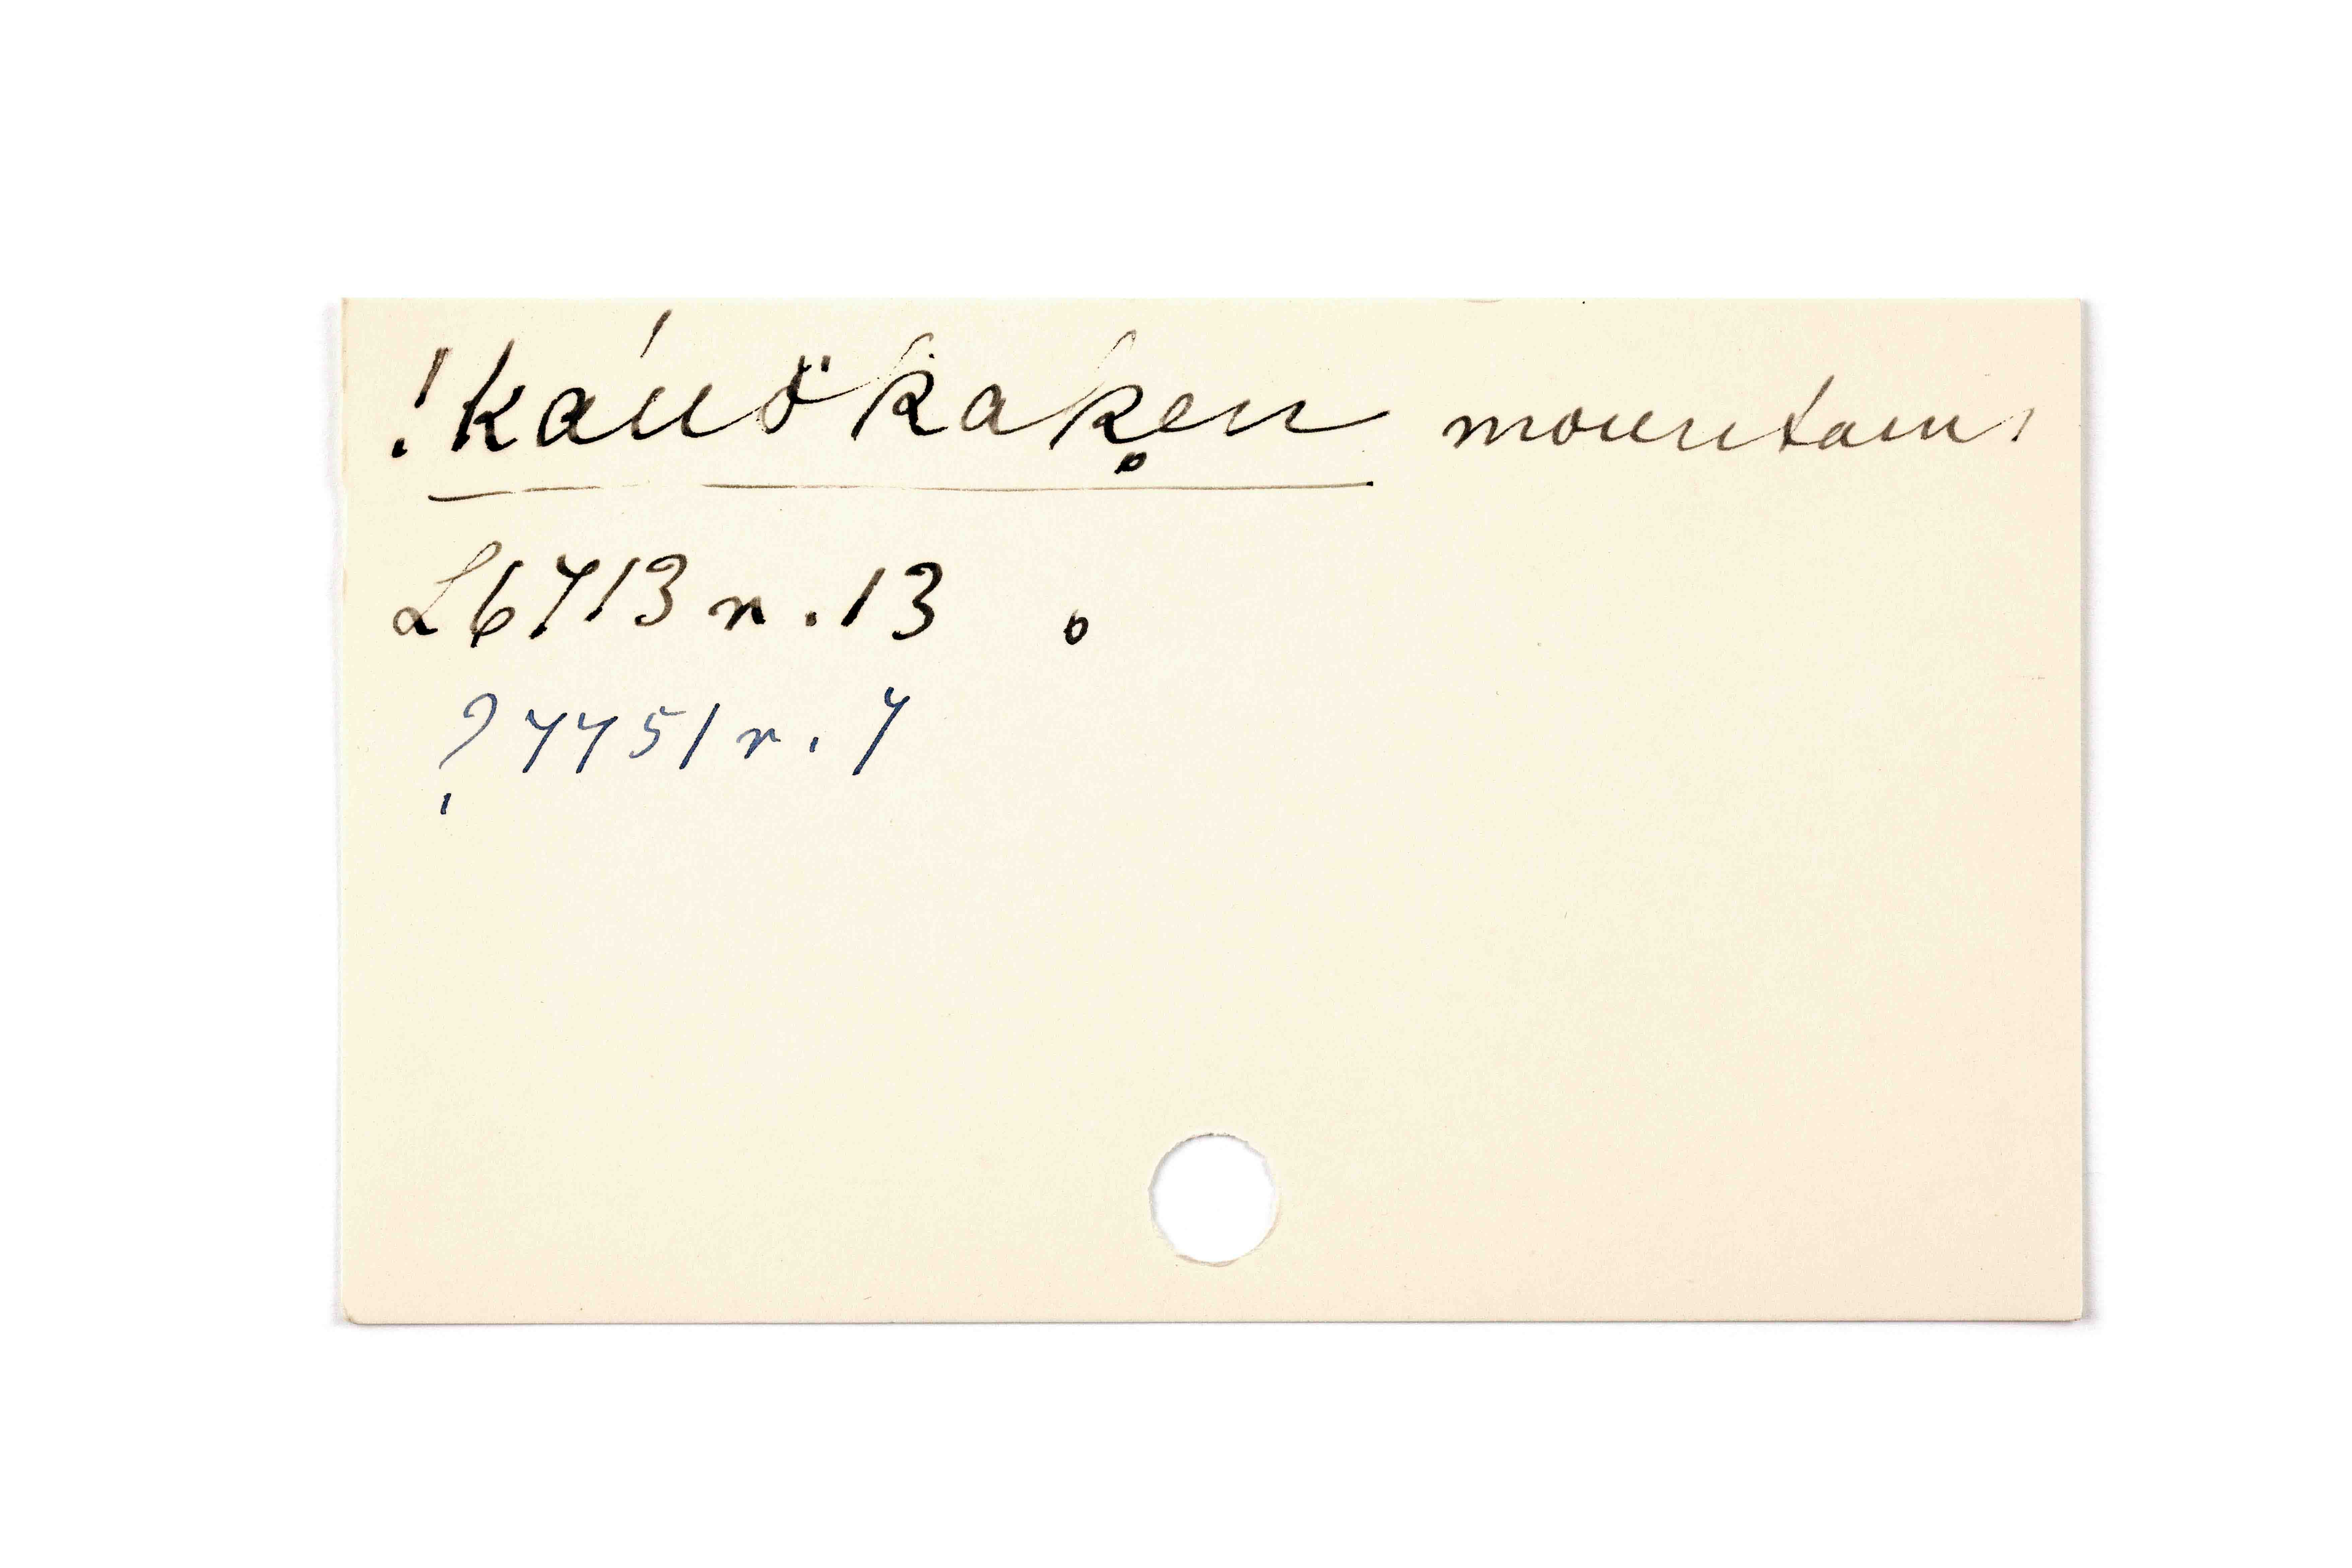 !káuökak̥en mountains
L6713r.13 o
? 7751r.7